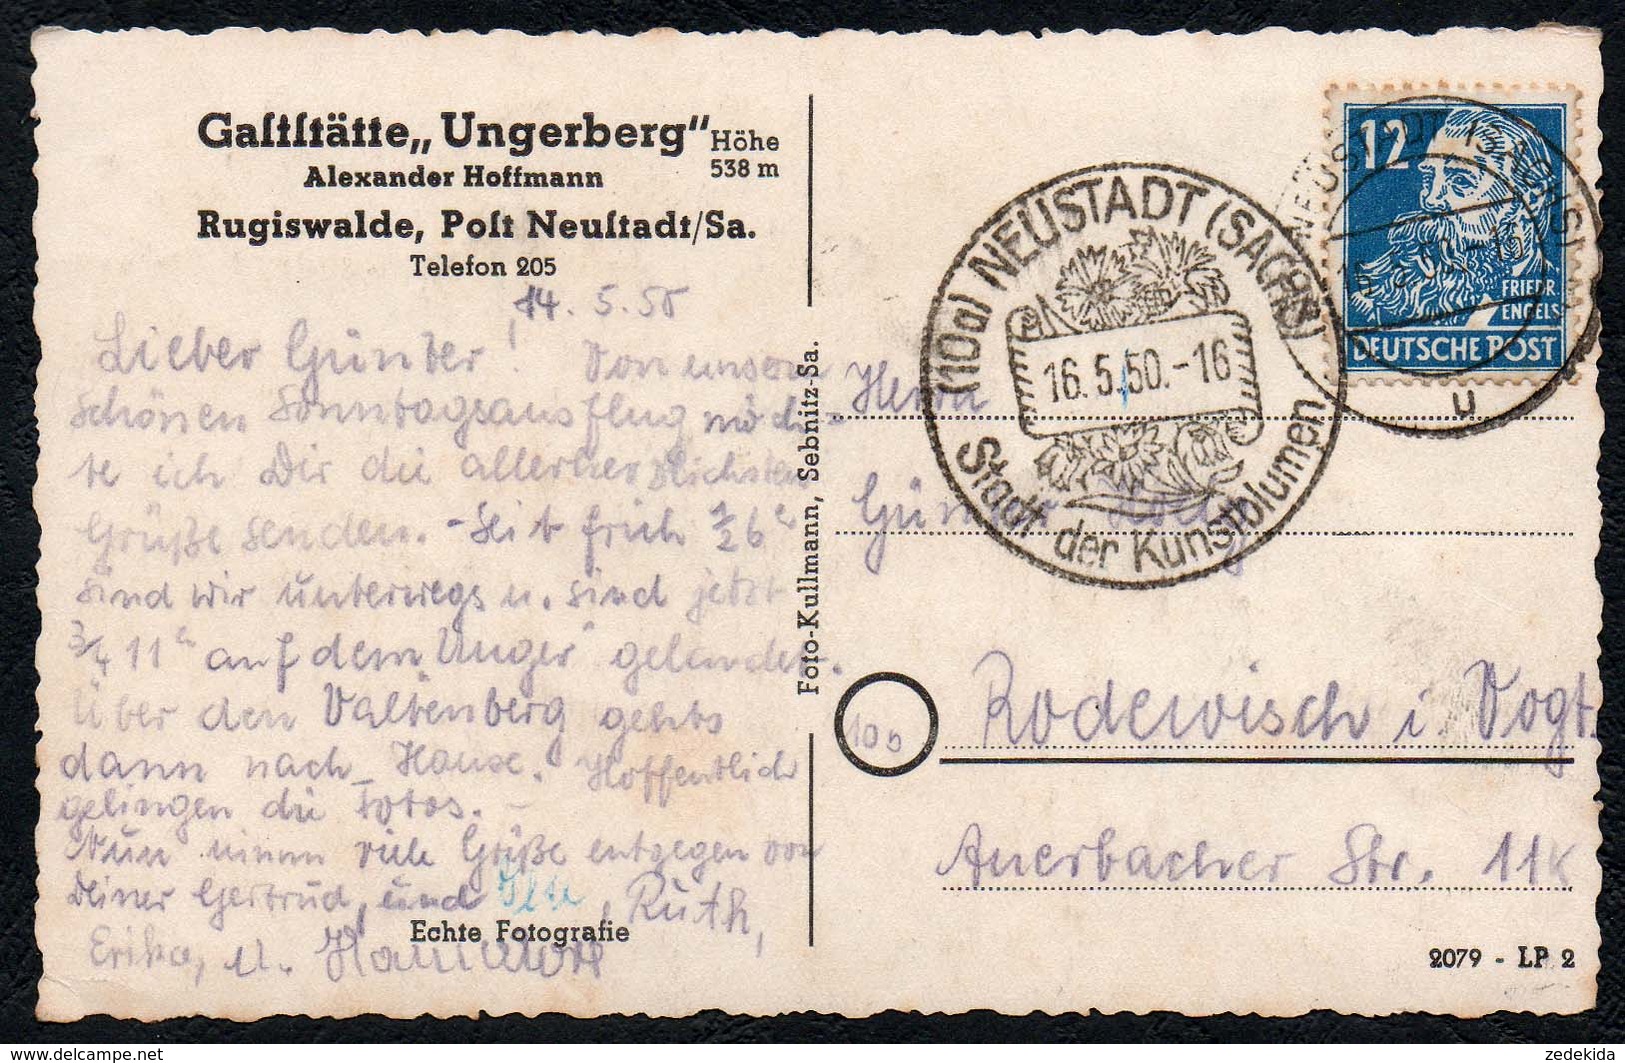 Gaſtſtätte „Ungerberg“ Höhe
538 m
Alexander Hoffmann
Rugiswalde, Poſt Neuſtadt/Sa.
Telefon 205
14. 5. 50
Lieber Günter! Von unserm
schönen Sonntagsausflug möch-
te ich Dir die allerherzlichsten
Grüße senden. - Seit früh 1/2 6 h
sind wir unterwegs u. sind jetzt
3/4 11 h auf dem "Unger" gelandet.
Über den Valtenberg gehts
dann nach Hause. Hoffentlich
gelingen die Fotos. -
Nun nimm viele Grüße entgegen von
Deiner Gertrud, und Ilse, Ruth,
Erika, u.
Echte Fotografie
Foto-Kullmann, Sebnitz-Sa.
(10a) NEUSTADT (SACHS)
16.5.50.-16
Stadt der Kunstblumen
12
FRIEDR.
ENGELS
DEUTSCHE POST
NEUSTADT (SACHS)
16.5.50.-16
u
Herrn
Günter
10b
Rodewisch i. Vogt.
Auerbacher Str. 11K
2079 - LP 2
zedekida